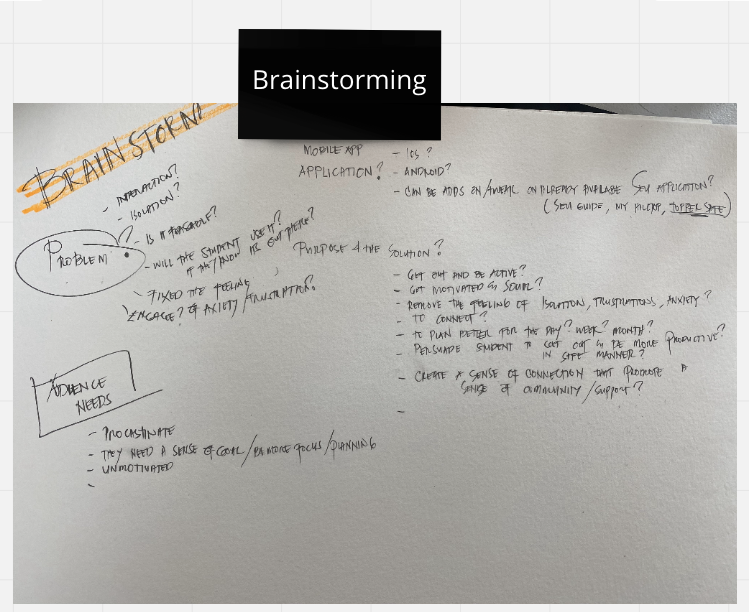 Brainstorming
BRAINSTORMI
MOBILE APP
APPLICATION?
- IOS ?
- ANDROID?
- CAN BE ADDS ON / ON ALREADY AVAILABLE SFU APPLICATION?
(SFU GUIDE, MY , SAFE)
- INTERACTION?
- ISOLATION?
PROBLEM ?
- IS IT FEASABLE?
- WILL THE STUDENT USE IT?
IF THEY KNOW ITS OUT THERE?
- FIXED THE FEELING
ENGAGE? OF AXIETY / FRUSTRATION?
PURPOSE 4 THE SOLUTION?
- GET OUT AND BE ACTIVE?
- GET MOTIVATED IN
- REMOVE THE FEELING OF ISOLATION, FRUSTRATIONS, ANXIETY?
- TO CONNECT?
- TO PLAN BETTER FOR THE DAY? WEEK? MONTH?
- PERSUADE STUDENT TO OUT BE MORE PRODUCTIVE?
IN SAFE MANNER?
- CREATE A SENSE OF CONNECTION THAT PROMOTE A
SENSE OF COMMUNITY / SUPPORT?
-
AUDIENCE
NEEDS
- PROCASTINATE
- THEY NEED A SENSE OF GOAL / BE MORE FOCUS / PLANNING
- UNMOTIVATED
-